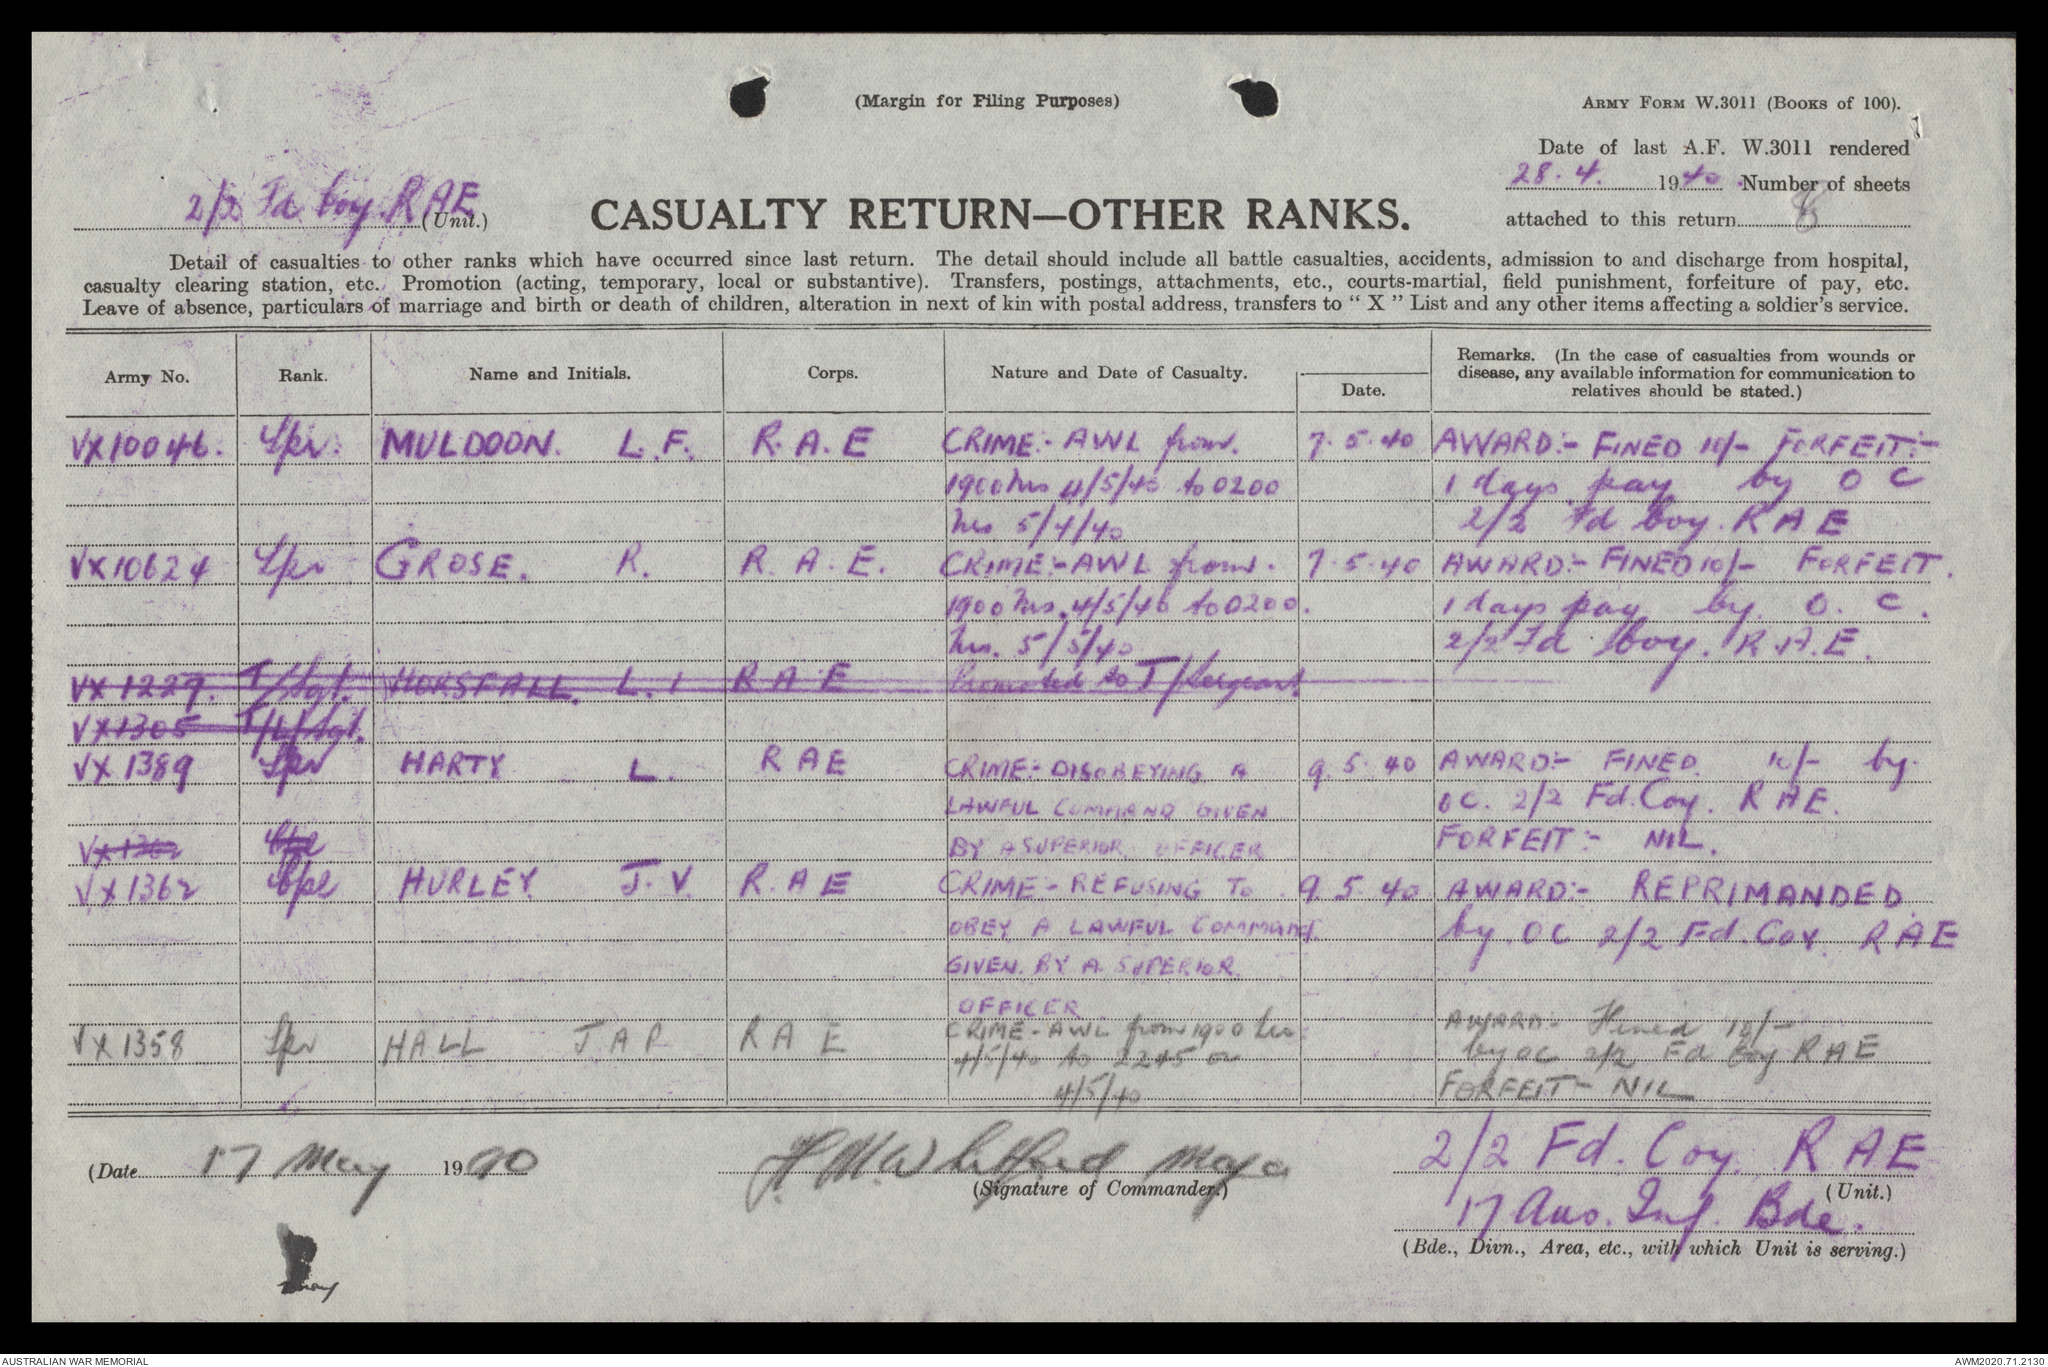 (Margin for Filing Purposes)
ARMY FORM W.3011 (BOOKS OF 100).
Date of last A.F. W.3011 rendered
28.4. 1940. Number of sheets
attached to this return
2/2 Fd Coy. RAE (Unit.)
CASUALTY RETURN—OTHER RANKS.
Detail of casualties to other ranks which have occurred since last return. The detail should include all battle casualties, accidents, admission to and discharge from hospital,
casualty clearing station, etc. Promotion (acting, temporary, local or substantive). Transfers, postings, attachments, etc., courts-martial, field punishment, forfeiture of pay, etc.
Leave of absence, particulars of marriage and birth or death of children, alteration in next of kin with postal address, transfers to " X " List and any other items affecting a soldier's service.
Army No. Rank. Name and Initials. Corps. Nature and Date of Casualty. Date. Remarks. (In the case of casualties from wounds or
disease, any available information for communication to
relatives should be stated.)
VX10046. Spr. MULDOON. L.F. R.A.E CRIME:- AWL from. 7.5.40 AWARD:- FINED 10/- FORFEIT:-
1900 hrs 4/5/40 to 0200 1 days pay by O C
hrs 5/4/40 2/2 Fd Coy. R A E
VX10624 Spr GROSE. R. R.A.E. CRIME:- AWL from. 7.5.40 AWARD:- FINED 10/- FORFEIT.
1900 hrs. 4/5/40 to 0200. 1 days pay by O. C.
hrs. 5/5/40 2/2 Fd Coy. R.A.E.
VX 1229. T/Sgt. HORSFALL. L. I R A E Promoted to T/Sergeant
VX1305 T/L/Sgt.
VX 1389 Spr HARTY L. R A E CRIME:- DISOBEYING A 9.5.40 AWARD:- FINED. 10/- by
LAWFUL COMMAND GIVEN OC. 2/2 Fd. Coy. R A E.
VX1362 Cpl BY A SUPERIOR OFFICER FORFEIT:- NIL.
VX1362 Cpl HURLEY J.V. R.A E CRIME- REFUSING TO 9.5.40 AWARD:- REPRIMANDED.
OBEY A LAWFUL COMMAND by OC 2/2 Fd. Coy. R A E
GIVEN BY A SUPERIOR
OFFICER
VX1358 Spr HALL J A R R A E CRIME- AWL from 1900 hrs AWARD:- Fined 10/-
4/5/40 to 2245 on by OC 2/2 Fd Coy R A E
4/5/40 FORFEIT- NIL
(Date 17 May 1940 H.M. Whitford Major 2/2 Fd. Coy. R A E
(Signature of Commander.) (Unit.)
17 Aus. Inf. Bde.
(Bde., Divn., Area, etc., with which Unit is serving.)
AUSTRALIAN WAR MEMORIAL AWM2020.71.2130